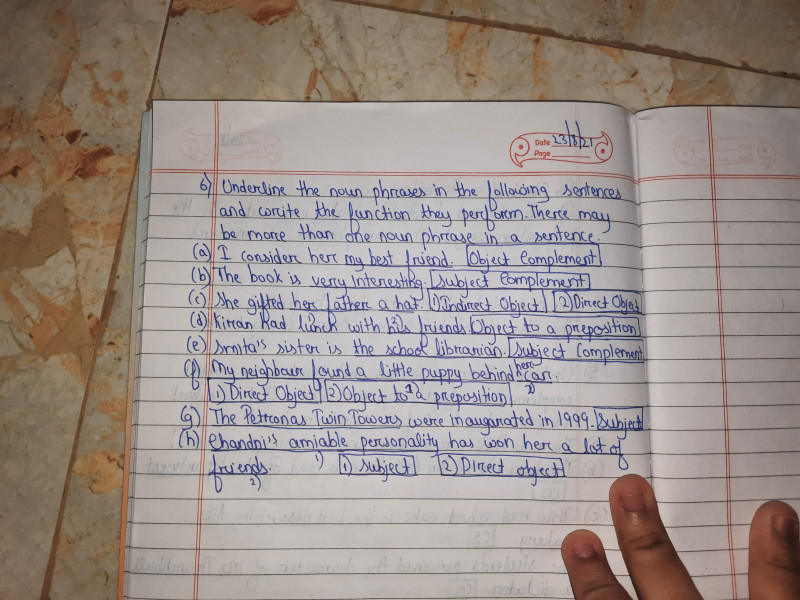 Date 23/8/21
Page
6) Underline the noun phrases in the following sentences
and write the function they perform. There may
be more than one noun phrase in a sentence.
(a) I consider her my best friend. Object Complement
(b) The book is very interesting. Subject Complement
(c) She gifted her father a hat 1) Indirect Object 2) Direct Object
(d) Kiran had lunch with his friends Object to a preposition
(e) Smita's sister is the school librarian. Subject Complement
(f) My neighbour found a little puppy behind her car.
1) Direct Object 2) Object to a preposition 1) 2)
(g) The Petronas Twin Towers were inaugarated in 1999. Subject
(h) Chandni's amiable personality has won her a lot of
friends 1) 1) Subject 2) Direct object
2)